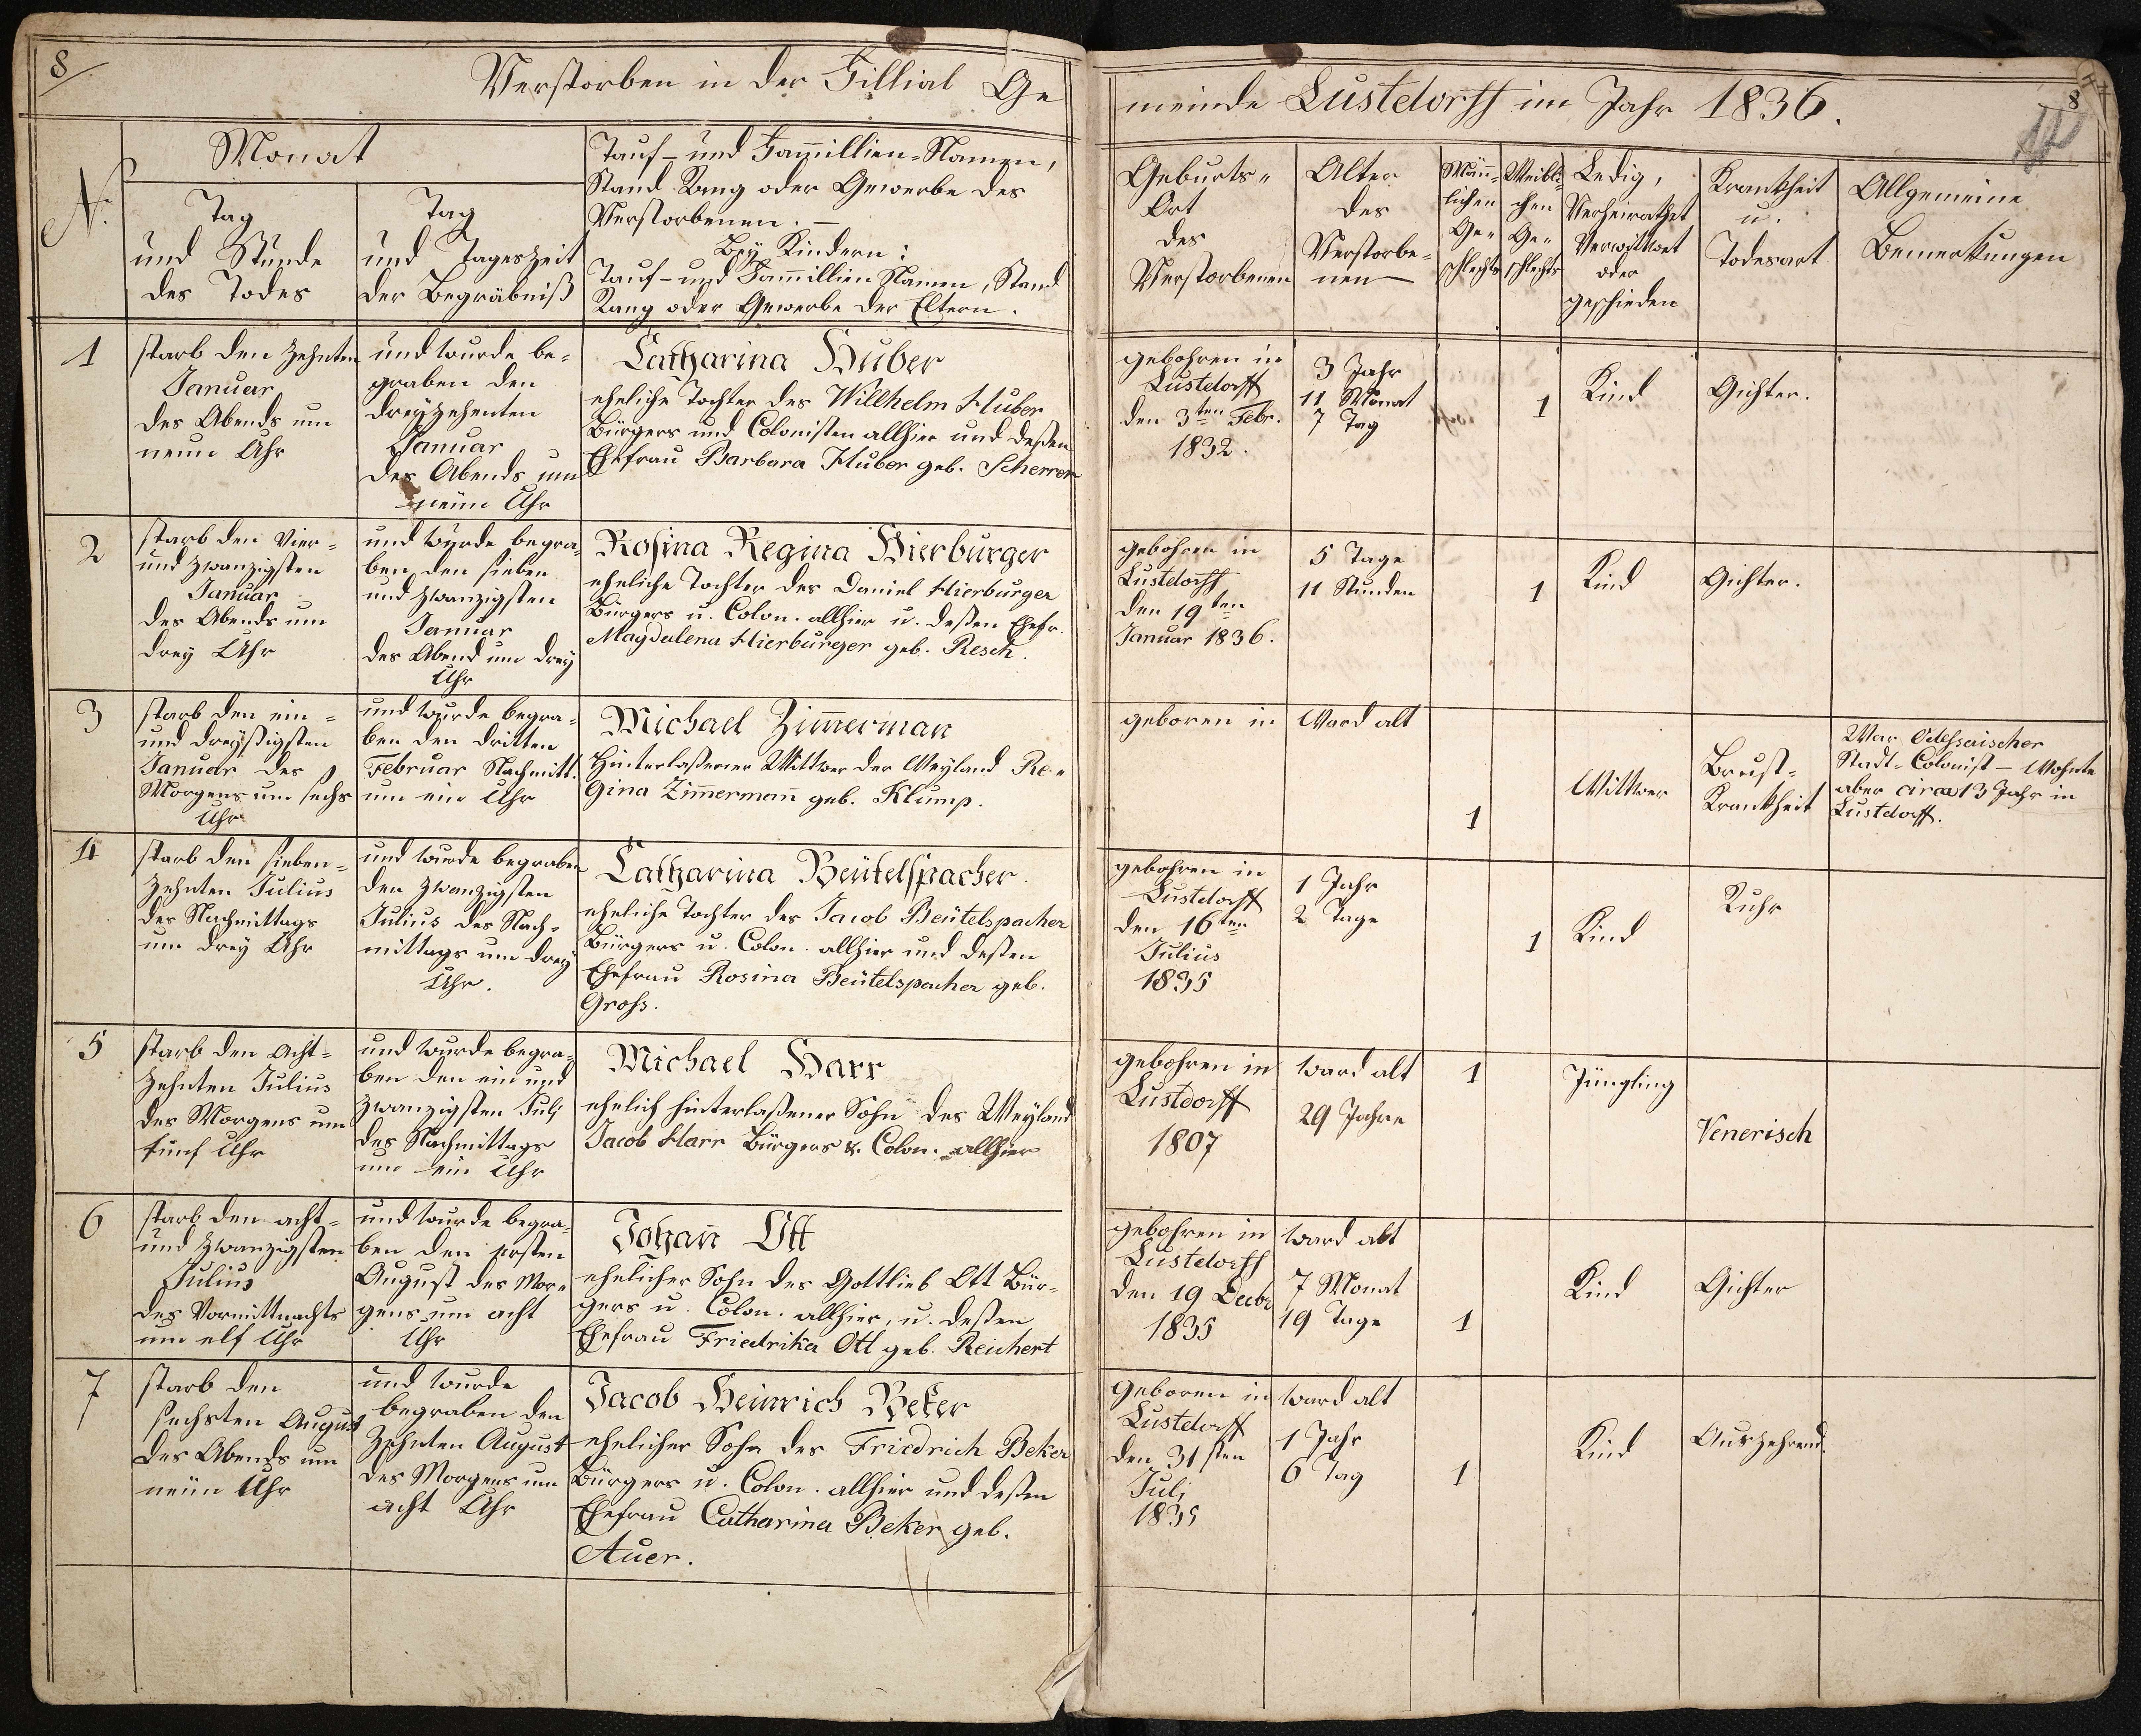 8
Verstorben in der Fillial Ge
meinde Lustdorff im Jahr 1836.
8
N.
Monat
Tag
und Stunde
des Todes
Tag
und Tageszeit
der Begräbniß
Tauf- und Fam̄illien-Namen,
Stand Rang oder Gewerbe des
Verstorbenen. —
Bey Kindern:
Tauf- und Fam̄illien Namen, Stand
Rang oder Gewerbe der Eltern.
Geburts-
Ort
des
Verstorbenen
Alter
des
Verstorbe-
nen
Män̄-
lichen
Ge-
schlechts
Weibli-
chen
Ge-
schlechts
Ledig,
Verheirathet
Verwittwet
oder
geschieden
Krankheit
u.
Todesart
Allgemeine
Bemerkungen
1
starb den zehnten
Januar
des Abends um
neun Uhr
und wurde be-
graben den
dreyzehenten
Januar
des Abends um
neun Uhr
Catharina Huber
eheliche Tochter des Willhelm Huber
Bürgers und Colonisten allhier und deßen
Ehefrau Barbara Huber geb. Scherrer
gebohren in
Lustdorff
den 3ten Febr.
1832.
3 Jahr
11 Monat
7 Tag
1
Kind
Gichter.
2
starb den vier-
und zwanzigsten
Januar
des Abends um
drey Uhr
und wurde begra-
ben den sieben
und zwanzigsten
Januar
des Abend um drey
Uhr
Rosina Regina Hierburger
eheliche Tochter des Daniel Hierburger
Bürgers u. Colon. allhier u. deßen Ehefr.
Magdalena Hierburger geb. Resch.
gebohren in
Lustdorff
den 19ten
Januar 1836.
5 Tage
11 Stunden
1
Kind
Gichter.
3
starb den ein-
und dreyßigsten
Januar des
Morgens um sechs
Uhr
und wurde begra-
ben den dritten
Februar Nachmitt.
um ein Uhr
Michael Zim̄erman
Hinterlaßener Wittwer der Weyland Re-
gina Zim̄erman̄ geb. Klump.
geboren in
Ward alt
1
Wittwer
Brust-
Krankheit
War Odessaischer
Stadt-Colonist — Wohnte
aber circa 13 Jahr in
Lustdorff.
4
starb den sieben-
zehnten Julius
des Nachmittags
um drey Uhr
und wurde begraben
den zwanzigsten
Julius des Nach-
mittags um drey
Uhr.
Catharina Beutelspacher.
eheliche Tochter des Jacob Beutelspacher
Bürgers u. Colon. allhier und deßen
Ehefrau Rosina Beutelspacher geb.
Groß.
gebohren in
Lustdorff
den 16ten
Julius
1835
1 Jahr
2 Tage
1
Kind
Ruhr
5
starb den acht-
zehnten Julius
des Morgens um
fünf Uhr
und wurde begra-
ben den ein und
zwanzigsten Julj
des Nachmittags
um ein Uhr
Michael Harr
ehelich hinterlaßener Sohn des Weyland
Jacob Harr Bürgers u. Colon. allhier
gebohren in
Lustdorff
1807
ward alt
29 Jahre
1
Jüngling
Venerisch
6
starb den acht-
und zwanzigsten
Julius
des Vormittnachts
um elf Uhr
und wurde begra-
ben den ersten
August des Mor-
gens um acht
Uhr
Johan̄ Ott
ehelicher Sohn des Gottlieb Ott Bür-
gers u. Colon. allhier, u. deßen
Ehefrau Friedrika Ott geb. Reichert
gebohren in
Lustdorff
den 19 Decbr
1835
ward alt
7 Monat
19 Tage
1
Kind
Gichter
7
starb den
sechsten August
des Abends um
neun Uhr
und wurde
begraben den
zehnten August
des Morgens um
acht Uhr
Jacob Heinrich Beker
ehelicher Sohn des Friedrich Beker
Bürgers u. Colon. allhier und deßen
Ehefrau Catharina Beker geb.
Auer.
geboren in
Lustdorff
den 31sten
Julj
1835
ward alt
1 Jahr
6 Tag
1
Kind
Auszehrend.